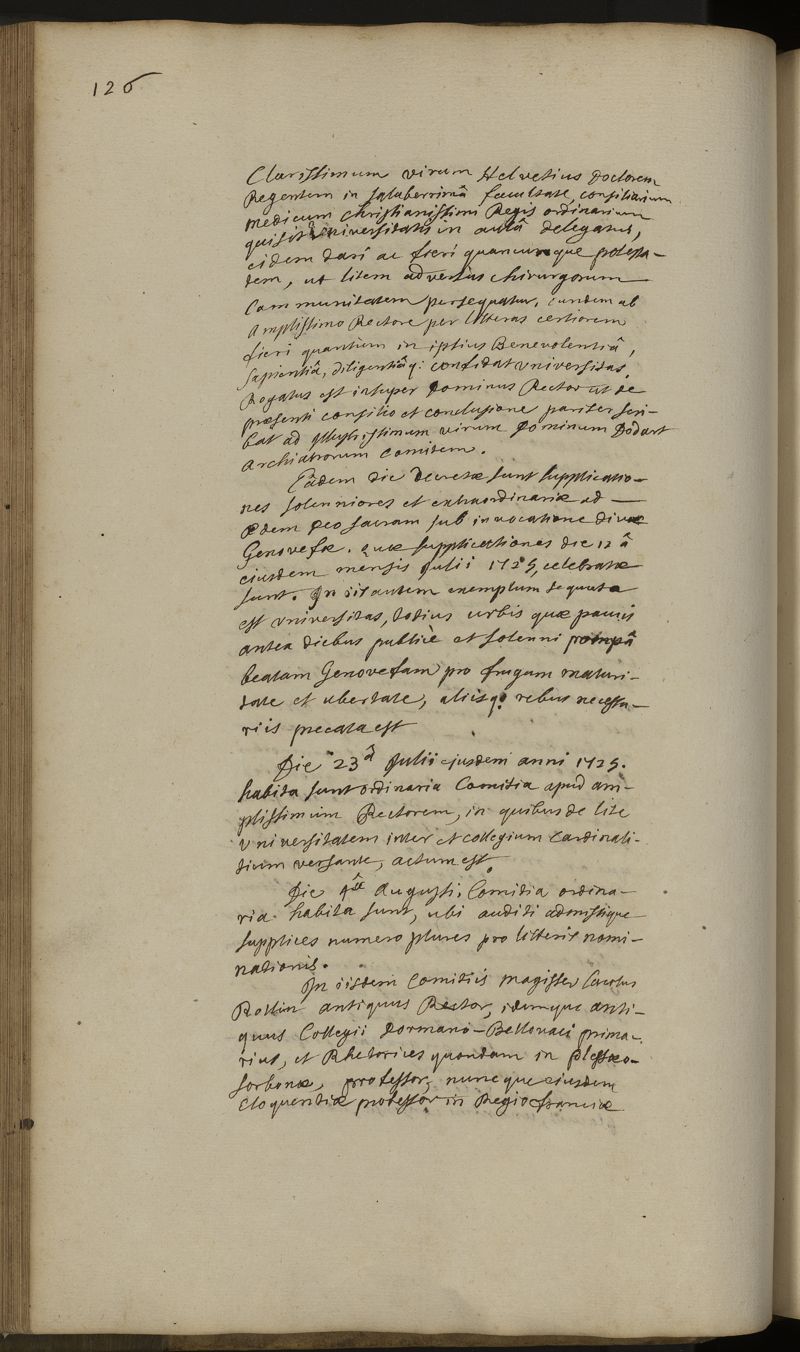 126
Clarissimum virum Helvetius Doctorem
Regentem in saluberrimâ facultate, consiliarium
medicum christianissimi Regis ordinarium
qui sit universitatis in aulâ delegatus,
eidem dari ac fieri quamcumque potesta-
tem, ut litem adversus chirurgorum
Communitatem persequatur, eundem ab
Amplissimo Rectore per litteras certiorem
fieri quantum in ipsius Benevolentiâ,
sapientiâ, diligentiâq: confidat universitas.
Rogatus est insuper Dominus Rector ut de
præsenti consilio et conclusione pariter scri-
bat ad illustrissimum virum Dominum Dodart
Archiatrorum comitem.
Eâdem die Decretæ sunt supplicatio-
nes solenniores et extraordinariæ ad
ædem Deo sacram sub invocatione divæ
Genovefæ. quæ supplicationes die 12 â
eiusdem mensis Julii 1725, celebratæ
sunt. In iis autem exemplum sequuta
est universitas, totius urbis quæ paucis
antea diebus publicè et solenni pompâ
beatam Genovefam pro frugum maturi-
tate et ubertate, aliisq: rebus necessa-
riis precata est
Die 23â Julii ejusdem anni 1725.
habita sunt ordinaria Comitia apud am-
plissimum Rectorem, in quibus de lite
universitatem inter et collegium Cardinali-
tium versante, actum est.
Die Augusti, Comitia ordina-
ria habita sunt, ubi auditi admissique
supplices numero plures pro litteris nomi-
nationis.
In iisdem Comitiis magister Carolus
Rollin antiquus Rector, idemque anti-
quus Collegii Dormano-Bellovaci prima-
rius, et Rhetorices quondam in Plessæo-
sorbona, professor, nuncque eiusdem
Eloquentiæ professor in Regio franciæ